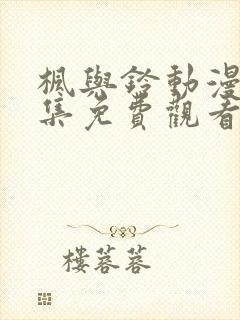 楓與鈴動漫
集免費觀看
樓蓉蓉